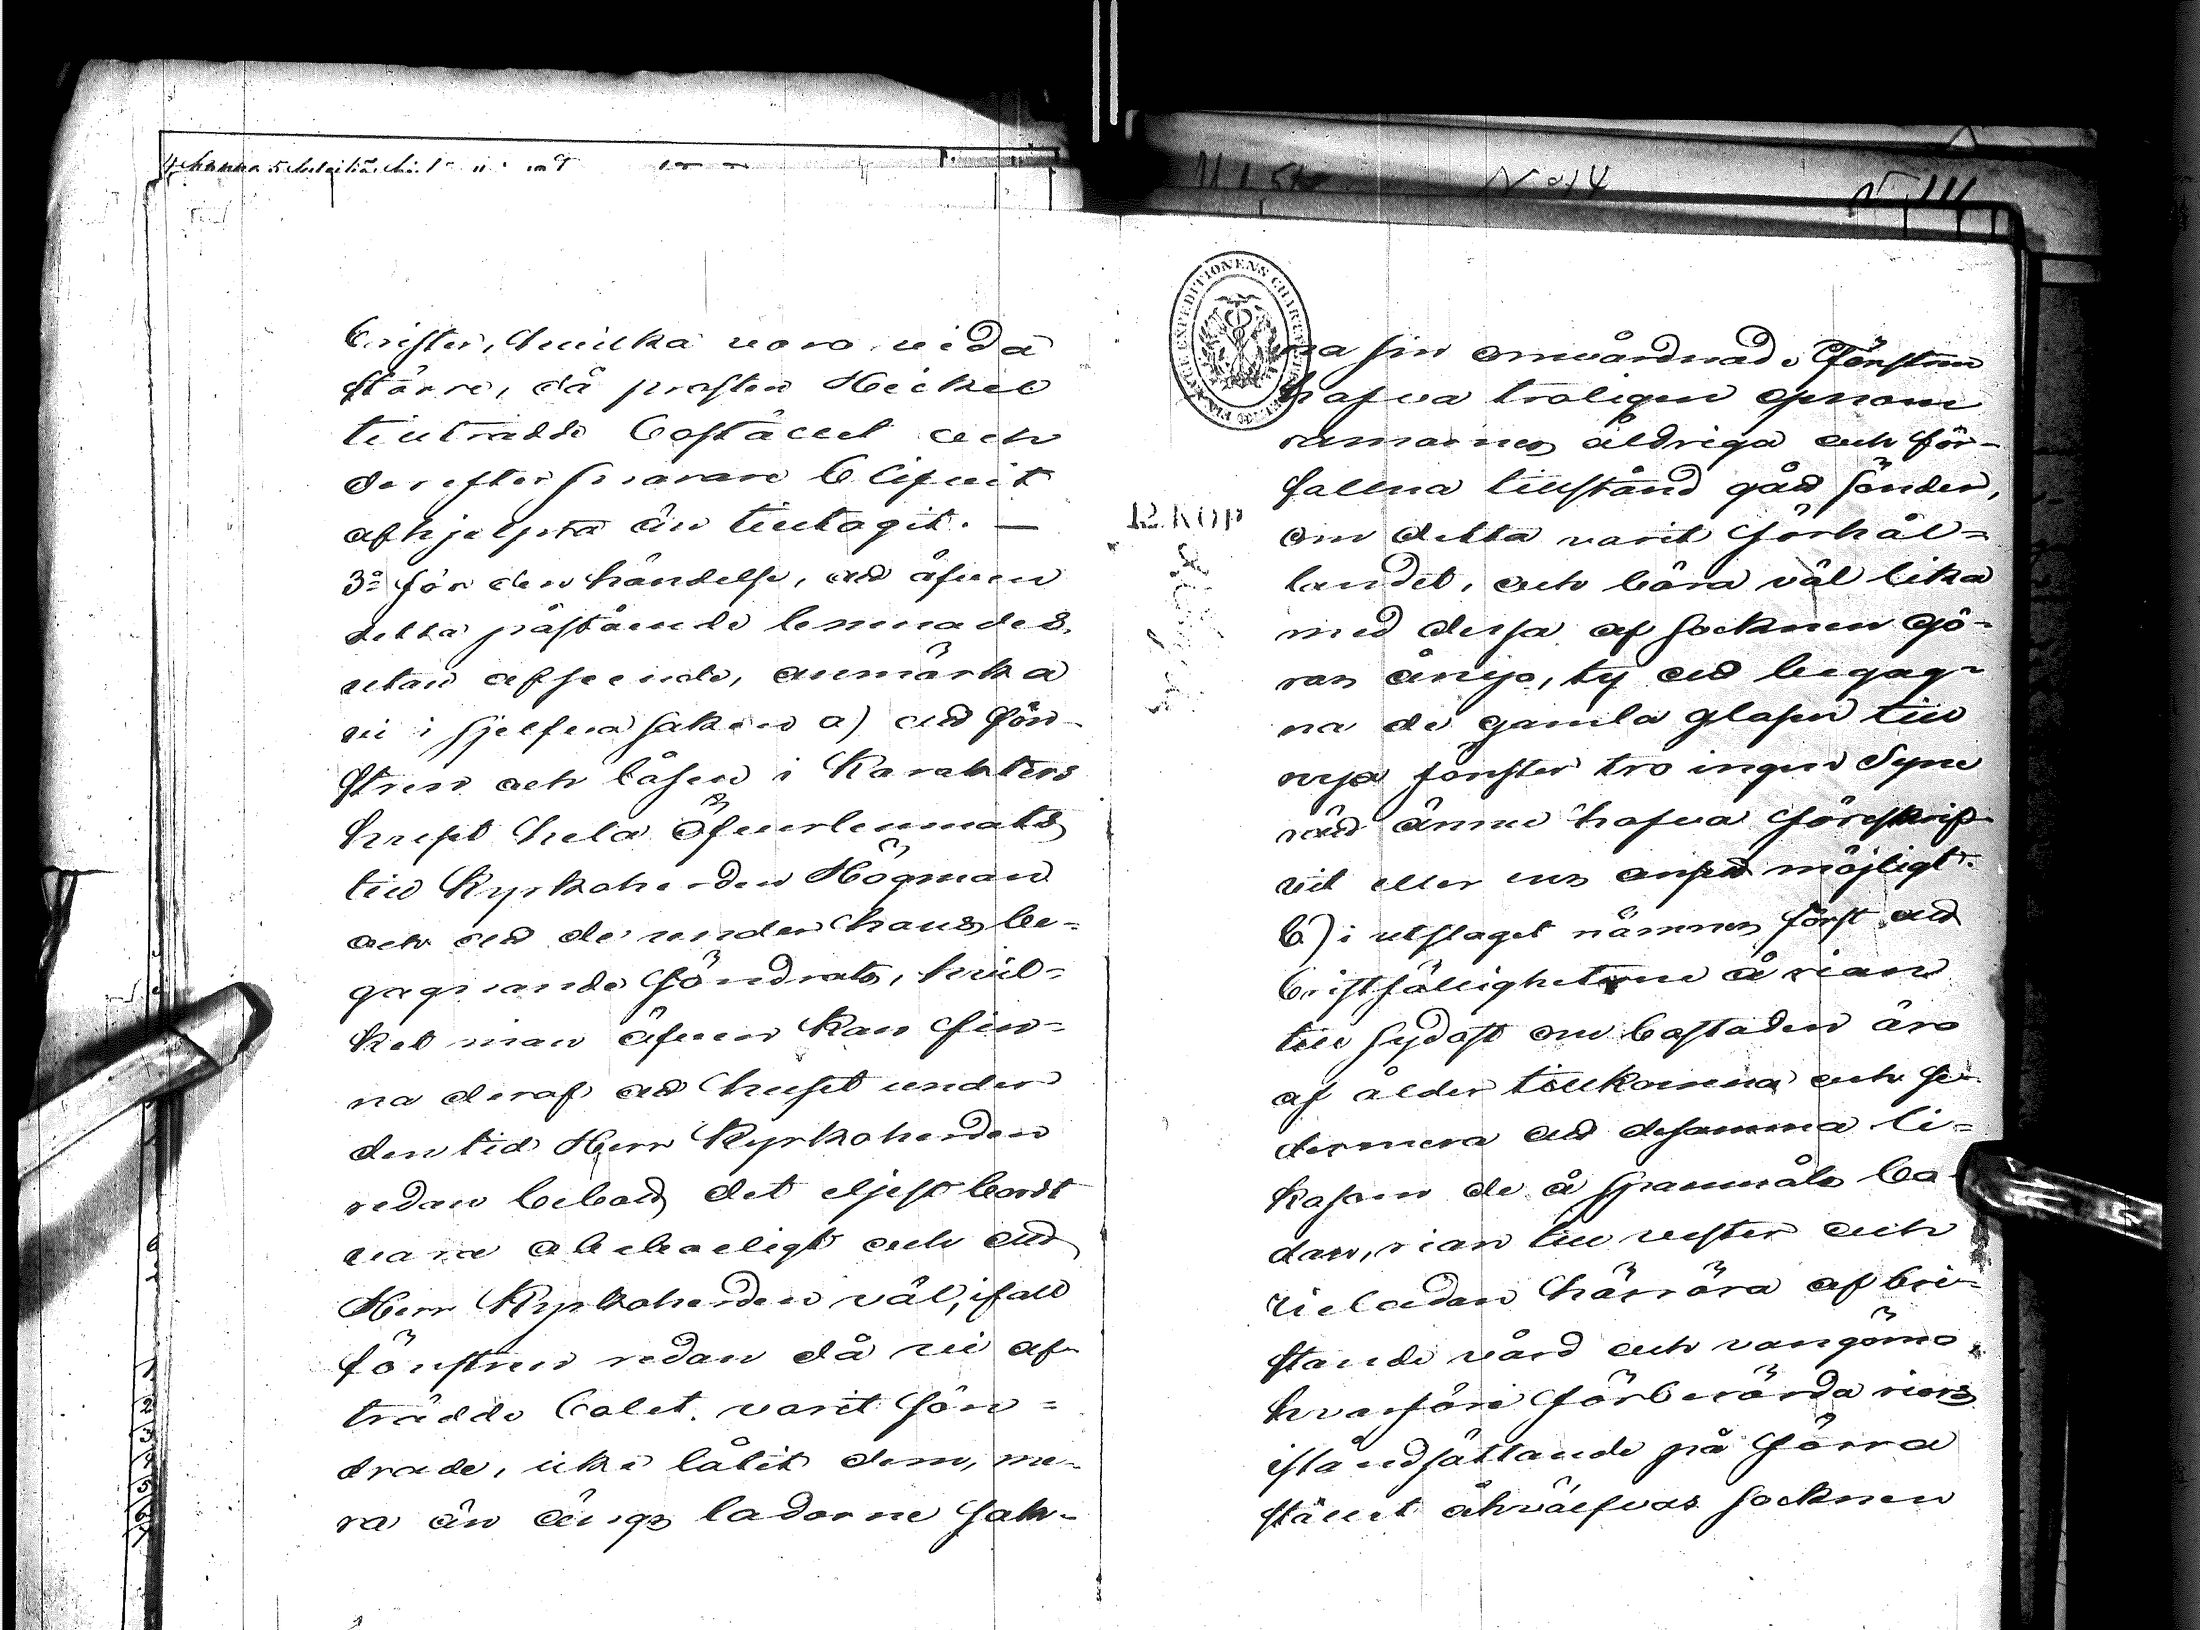 brister, hvilka voro vida
större, då prosten Heickel
tillträdde bostället och
derefter snarare blifvit
afhjelpta än tilltagit. —
3:o för den händelse, att äfven
detta påstående lemnades
utan afseende, anmärka
vi i sjelfva saken a) att fön-
stren och låsen i Karakters
huset hela öfverlemnats
till Kyrkoherden Högman
och att de under hans be-
gagnande söndrats, hvil-
ket man äfven kan fin-
na deraf att huset under
den tid Herr Kyrkoherden
redan bebott det eljest bordt
vara obeboeligt och att
Herr Kyrkoherden väl, ifall
fönstren redan då vi af-
trädde bolet varit sön-
drade, icke låtit dem, me-
ra än ängs ladorne sak-
na sin omvårdnad. Fönstren
hafva troligen genom
ramarnes åldriga och för-
fallna tillstånd gått sönder,
om detta varit förhål-
landet, och böra väl lika
med dessa af socknen gö-
ras ånyo, ty att begag-
na de gamla glasen till
nya fönster tro ingen Syne
rätt ännu hafva föreskrif-
vit eller ens ansett möjligt.
b) i utslaget nämnes först att
bristfälligheterne å rian
till sydost om bostaden äro
af ålder tillkomna och se-
dermera att desamma li-
kasom de å spannmåls bo-
dan, rian till vester och
rieladan härröra af bri-
stande vård och vangömo,
hvarföre förberörda ries
iståndsättande på förra
stället åhvälfvas socknen
12 KOP